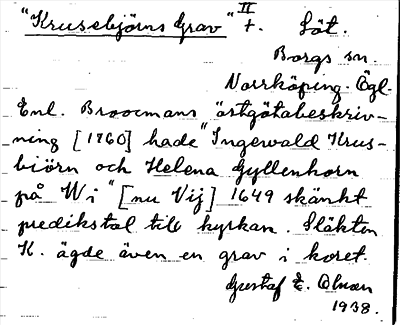 "Krusebjörns Grav" II †. Löt.
Borgs sn.
Norrköping. Ögl.
Enl. Broocmans östgötabeskriv-
ning [1760] hade "Ingewald Krus-
biörn och Helena Gyllenhorn
på Wi" [nu Vij] 1649 skänkt
predikstol till kyrkan. Släkten
K. ägde även en grav i koret.
Gustaf E. Olsson
1938.